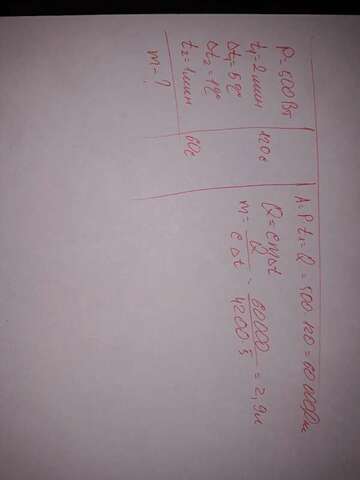 P=500Вт
t₁=2мин 120с
Δt₁=5°C
Δt₂=1°C
t₂=1мин 60с
m-?
A=P·t₁=Q=500·120=60 000Дж
Q=cmΔt
m=Q/cΔt=60000/4200·5=2,9л